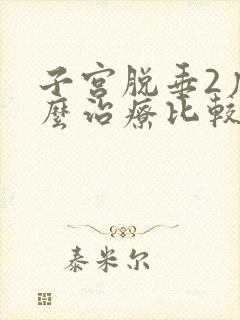 子宫脱垂2
麼治療比較
泰米尔